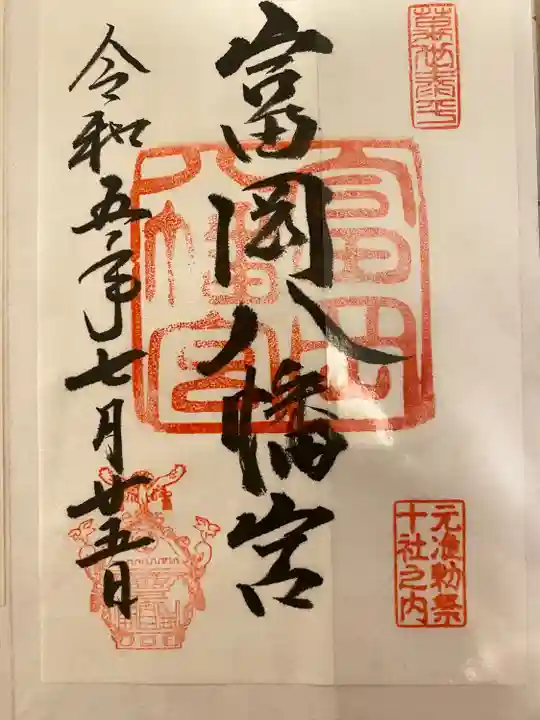 萬世泰平
元准勅祭
十社之内
富岡八幡宮
富岡
八幡宮
令和五年七月廿五日